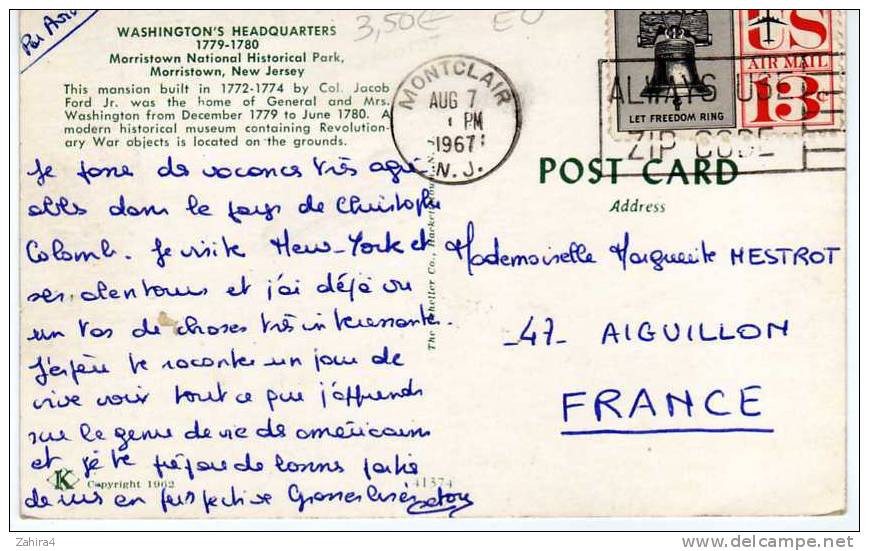 Par Avion
3,50€ EU
WASHINGTON'S HEADQUARTERS
1779-1780
Morristown National Historical Park,
Morristown, New Jersey
This mansion built in 1772-1774 by Col. Jacob
Ford Jr. was the home of General and Mrs.
Washington from December 1779 to June 1780. A
modern historical museum containing Revolution-
ary War objects is located on the grounds.
MONTCLAIR
AUG 7
PM
1967
N. J.
LET FREEDOM RING
US
AIR MAIL
13c
ALWAYS USE
ZIP CODE
Je passe des vacances très agré-
ables dans le pays de Christophe
Colomb. Je visite New-York et
ses alentours et j'ai déjà vu
un tas de choses très intéressantes.
J'espère te raconter un jour de
vive voix tout ce que j'apprends
sur le genre de vie des américains
et je te prépare de bonnes parties
de in en perspective Grosses bises
K Copyright 1962
41374
The Scheller Co., Hackettstown, N. J.
POST CARD
Address
Mademoiselle Marguerite MESTROT
-47- AIGUILLON
FRANCE
Zahira4
delcampe.net